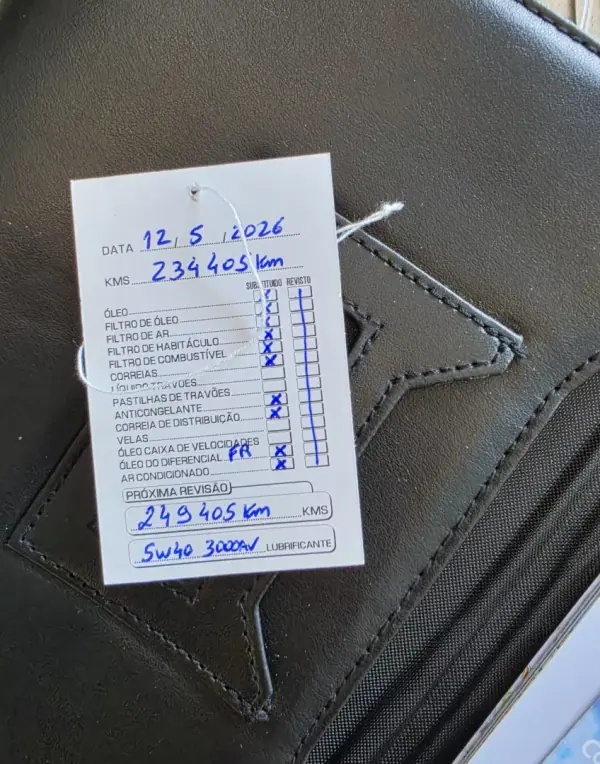 DATA 12 / 5 / 2026
KMS 234 405 km
SUBSTITUÍDO REVISTO
ÓLEO
FILTRO DE ÓLEO
FILTRO DE AR
FILTRO DE HABITÁCULO
FILTRO DE COMBUSTÍVEL
CORREIAS
LÍQUIDO TRAVÕES
PASTILHAS DE TRAVÕES
ANTICONGELANTE
CORREIA DE DISTRIBUIÇÃO
VELAS
ÓLEO CAIXA DE VELOCIDADES
ÓLEO DO DIFERENCIAL FR
AR CONDICIONADO
PRÓXIMA REVISÃO
249 405 km KMS
5W40 LUBRIFICANTE